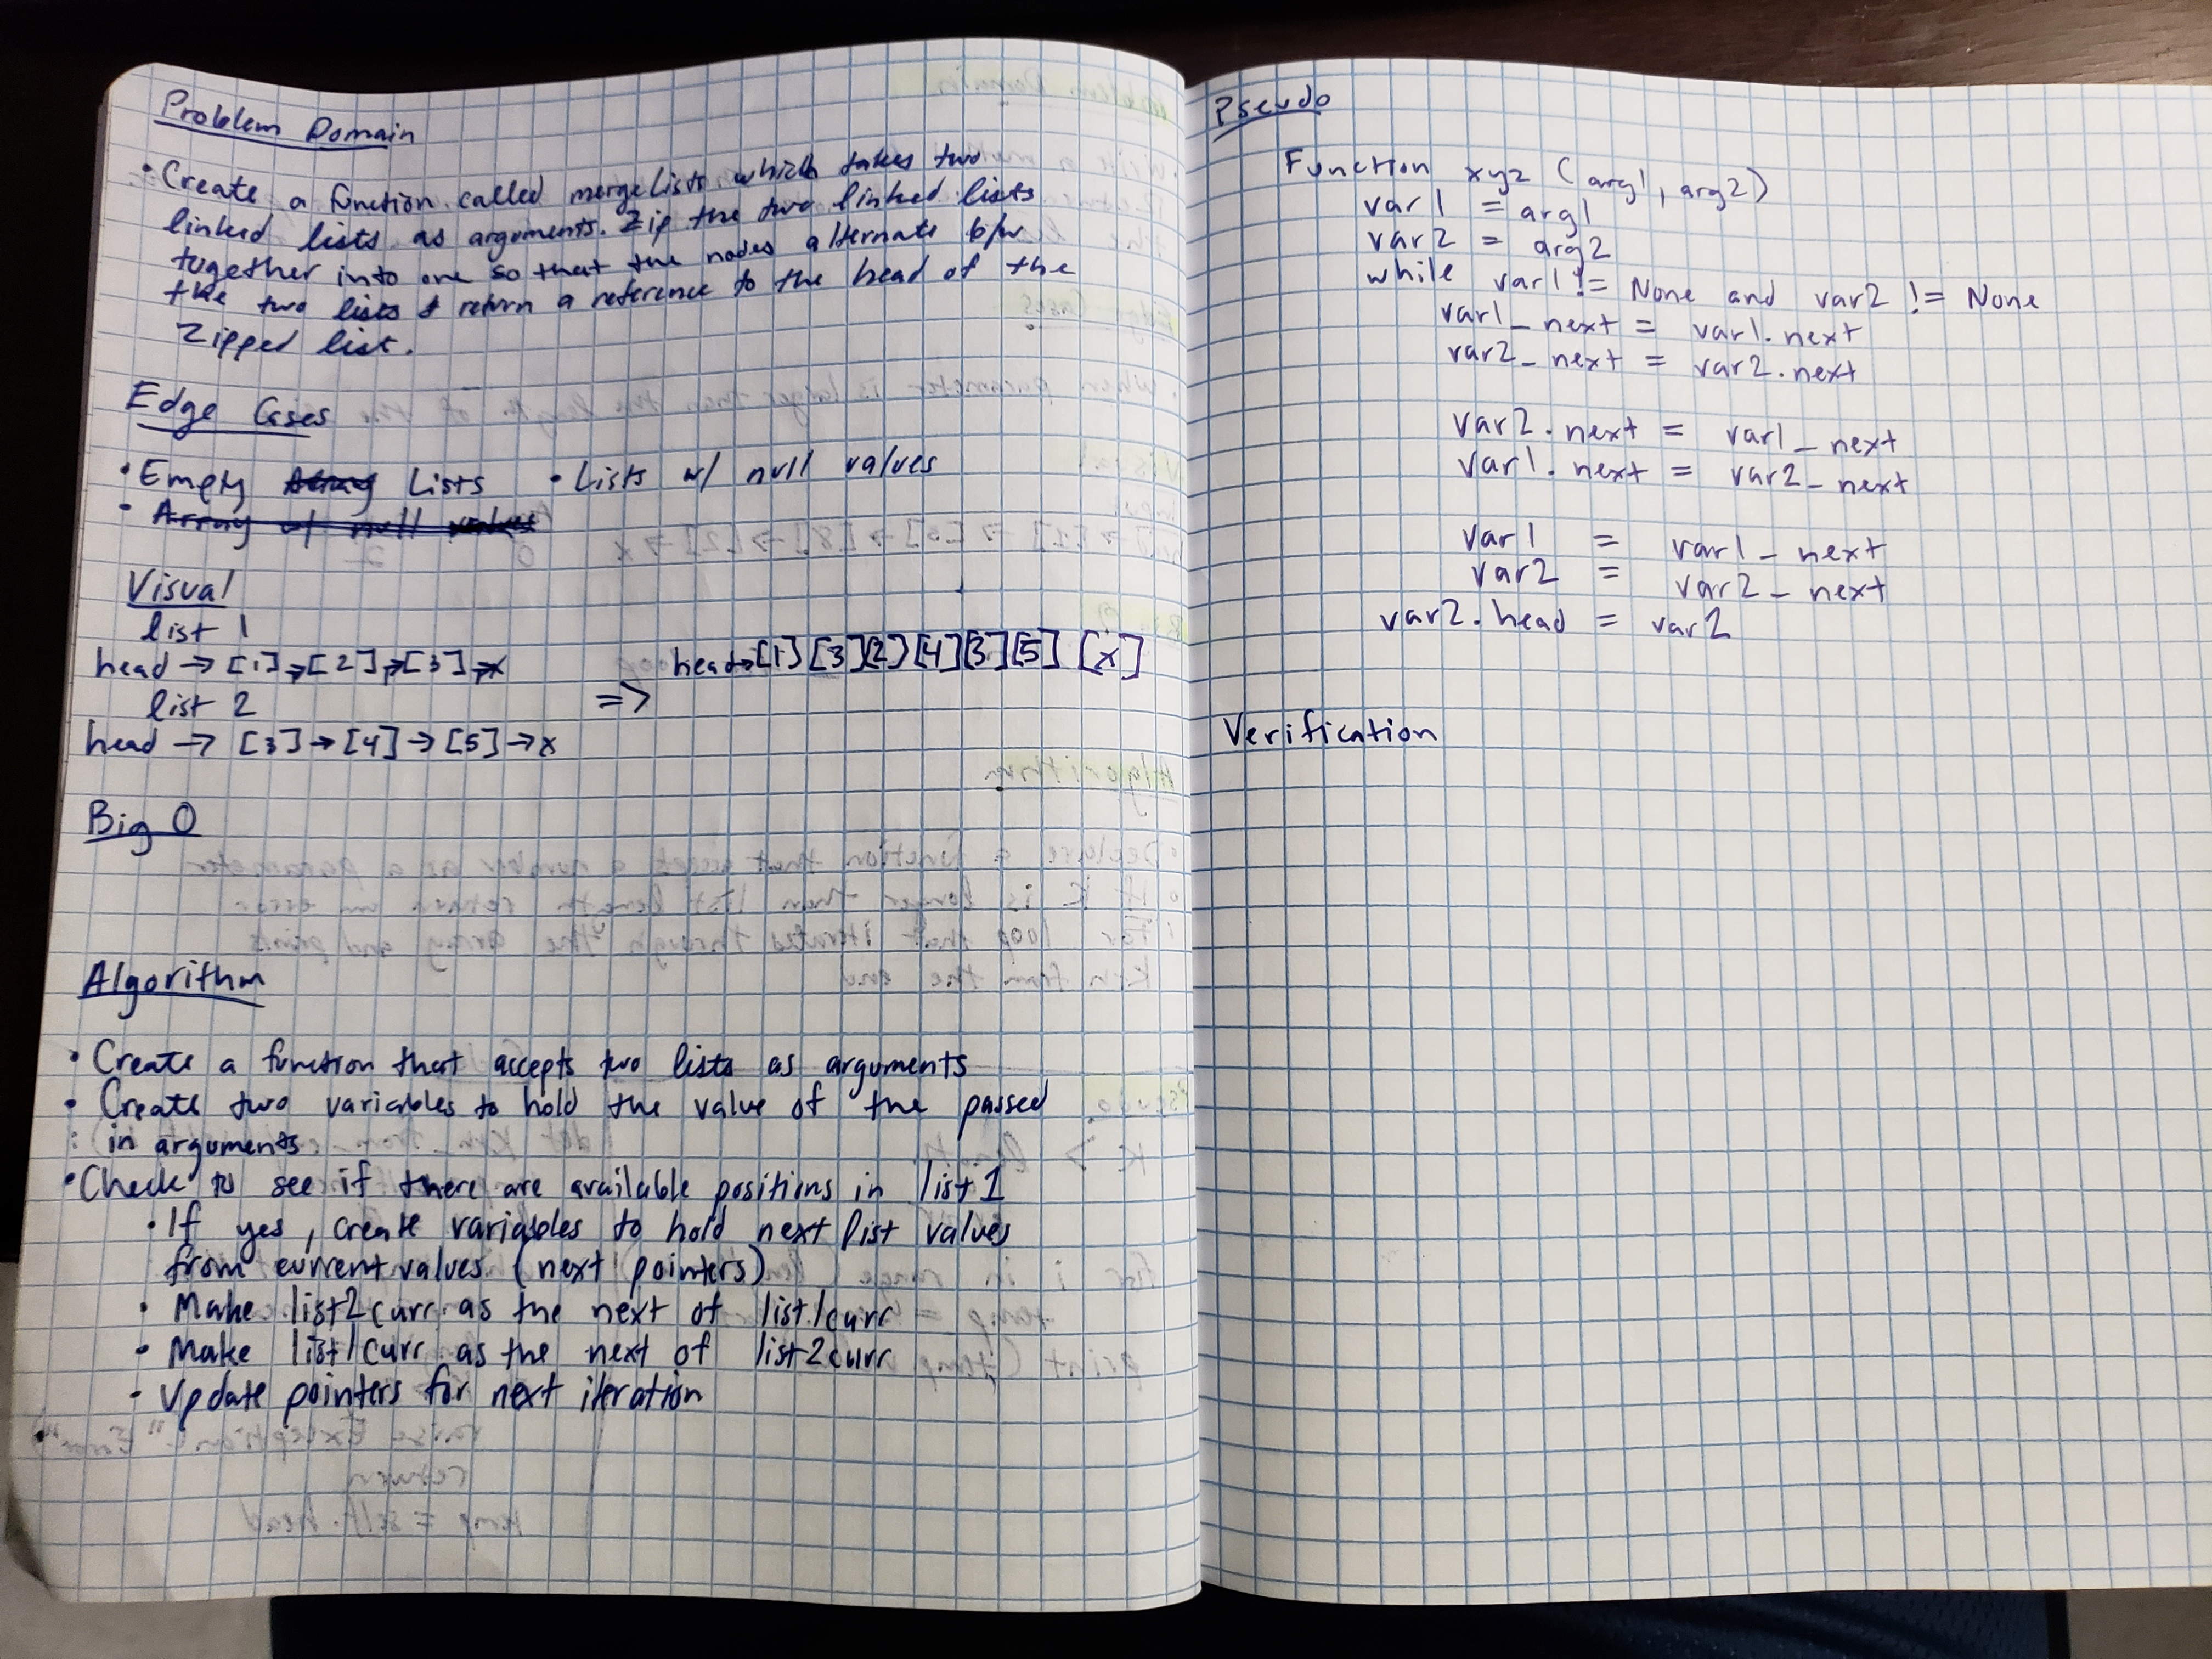 Problem Domain
• Create a function called merge lists which takes two
linked lists as arguments. Zip the two linked lists
together into one so that the nodes alternate b/w
the two lists & return a reference to the head of the
Zipped list.
Edge Cases
• Empty Lists • Lists w/ null values
• Array of null values
Visual
list 1
head → [1] → [2] → [3] → x
list 2
head → [3] → [4] → [5] → x
=>
head → [1] [3] [2] [4] [3] [5] [x]
Big O
Algorithm
• Create a function that accepts two lists as arguments
• Create two variables to hold the value of the passed
in arguments
• Check to see if there are available positions in list 1
• If yes, create variables to hold next list values
from current values (next pointers)
• Make list2curr as the next of list1curr
• Make list1curr as the next of list2curr
• Update pointers for next iteration
Pseudo
Function xyz (arg1, arg2)
var1 = arg1
var2 = arg2
while var1 != None and var2 != None
var1_next = var1.next
var2_next = var2.next
var2.next = var1_next
var1.next = var2_next
var1 = var1_next
var2 = var2_next
var2.head = var2
Verification